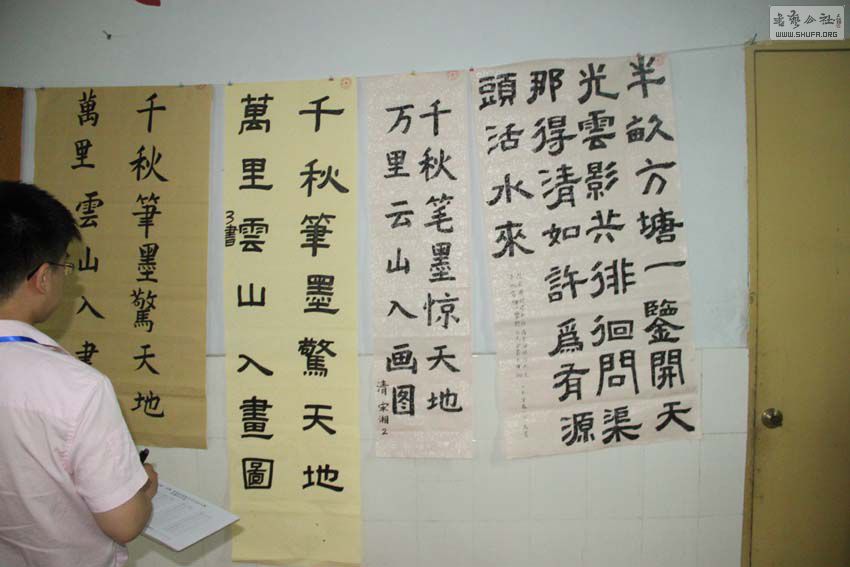 半畝方塘一鑒開天
光雲影共徘徊問渠
那得清如許爲有源
頭活水來
千秋笔墨惊天地
万里云山入画图
清 宋湘 2
千秋筆墨驚天地
萬里雲山入畫圖
3書
千秋筆墨驚天地
萬里雲山入畫
书艺公社
WWW.SHUFA.ORG